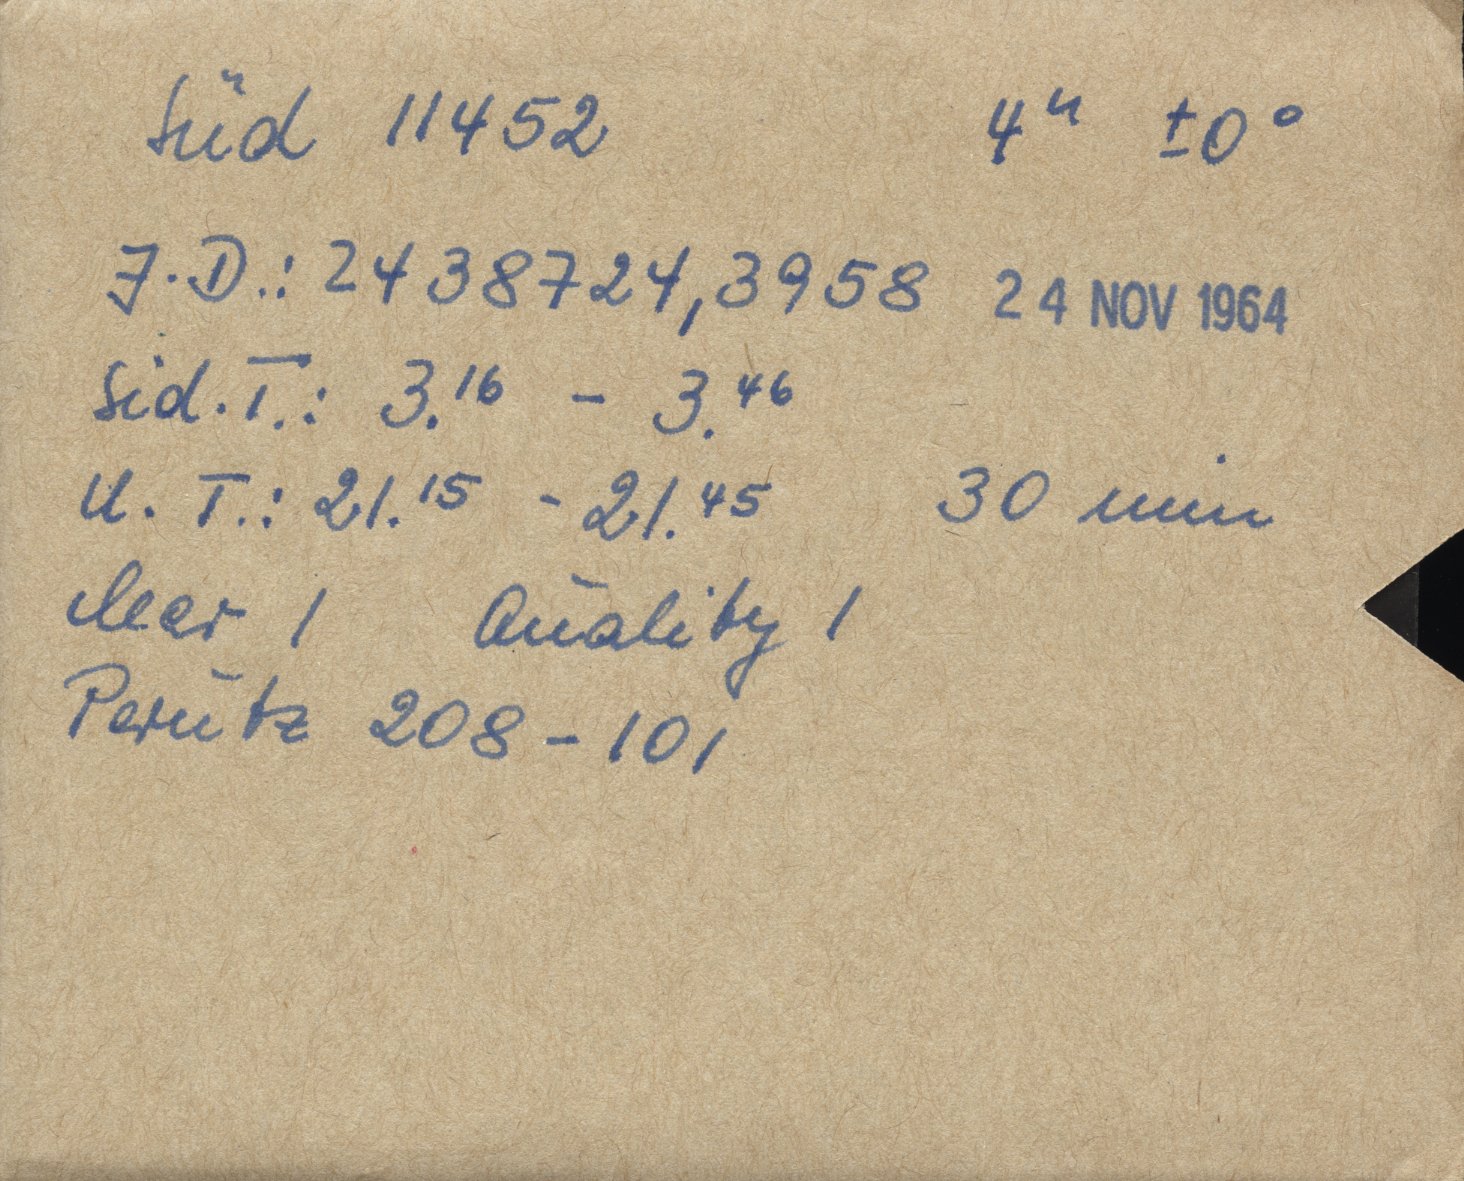 Süd 11452 4ʰ ±0°
J.D.: 2438724,3958 24 NOV 1964
Sid.T.: 3.¹⁶ - 3.⁴⁶
U.T.: 21.¹⁵ - 21.⁴⁵ 30 min
clear 1 Quality 1
Perutz 208-101